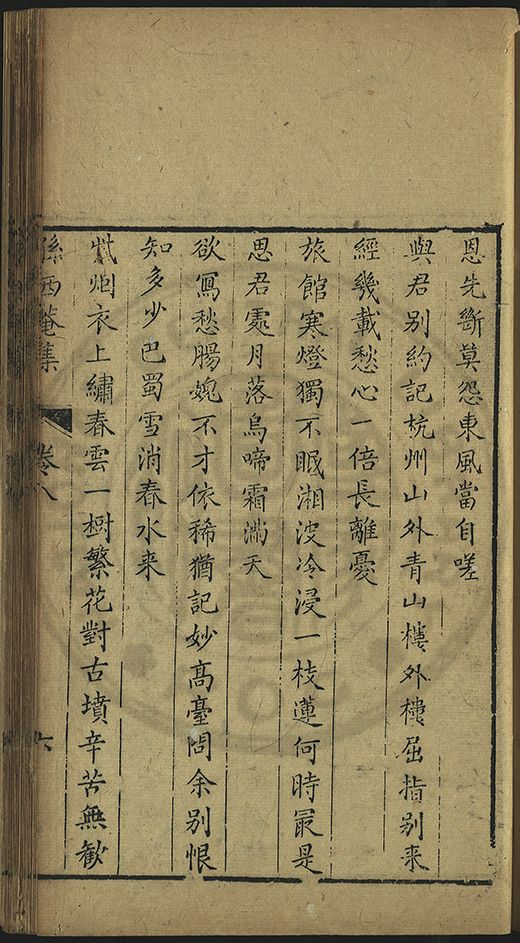 恩先斷莫怨東風當自嗟
與君別約記杭州山外青山樓外樓屈指別來
經幾載愁心一倍長離憂
旅館寒燈獨不眠湘波冷浸一枝蓮何時最是
思君處月落烏啼霜滿天
欲寫愁腸媿不才依稀猶記妙高臺問余別恨
知多少巴蜀雪消春水來
炮衣上繡春雲一樹繁花對古墳辛苦無歡
孫西菴集 卷八 六